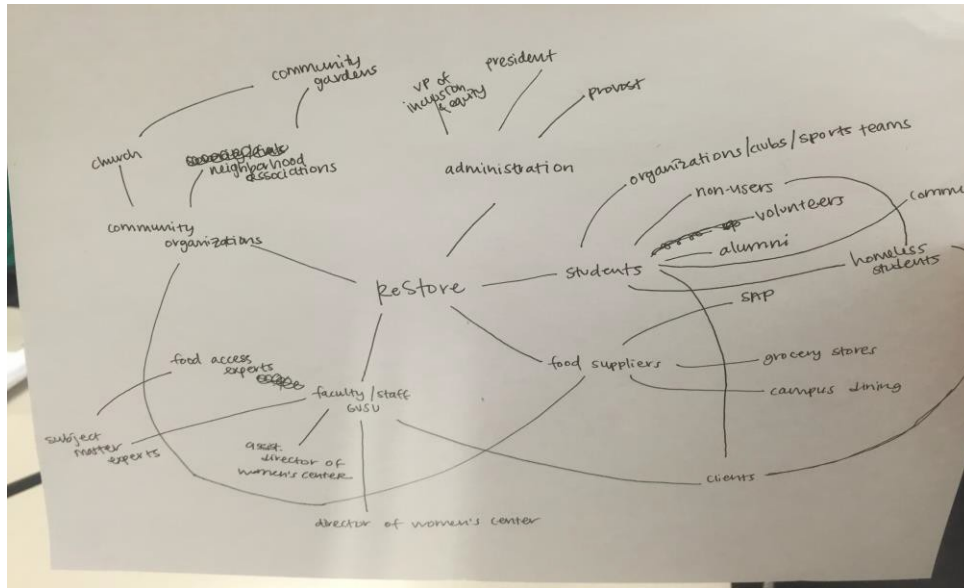 community
gardens
vp of
inclusion
& equity
president
provost
church
neighborhood
associations
administration
organizations/clubs/sports teams
non-users
volunteers
alumni
commu
homeless
students
community
organizations
ReStore
students
SAP
food access
experts
food suppliers
grocery stores
campus dining
faculty/staff
GVSU
subject
master
experts
asst.
director of
women's center
clients
director of women's center